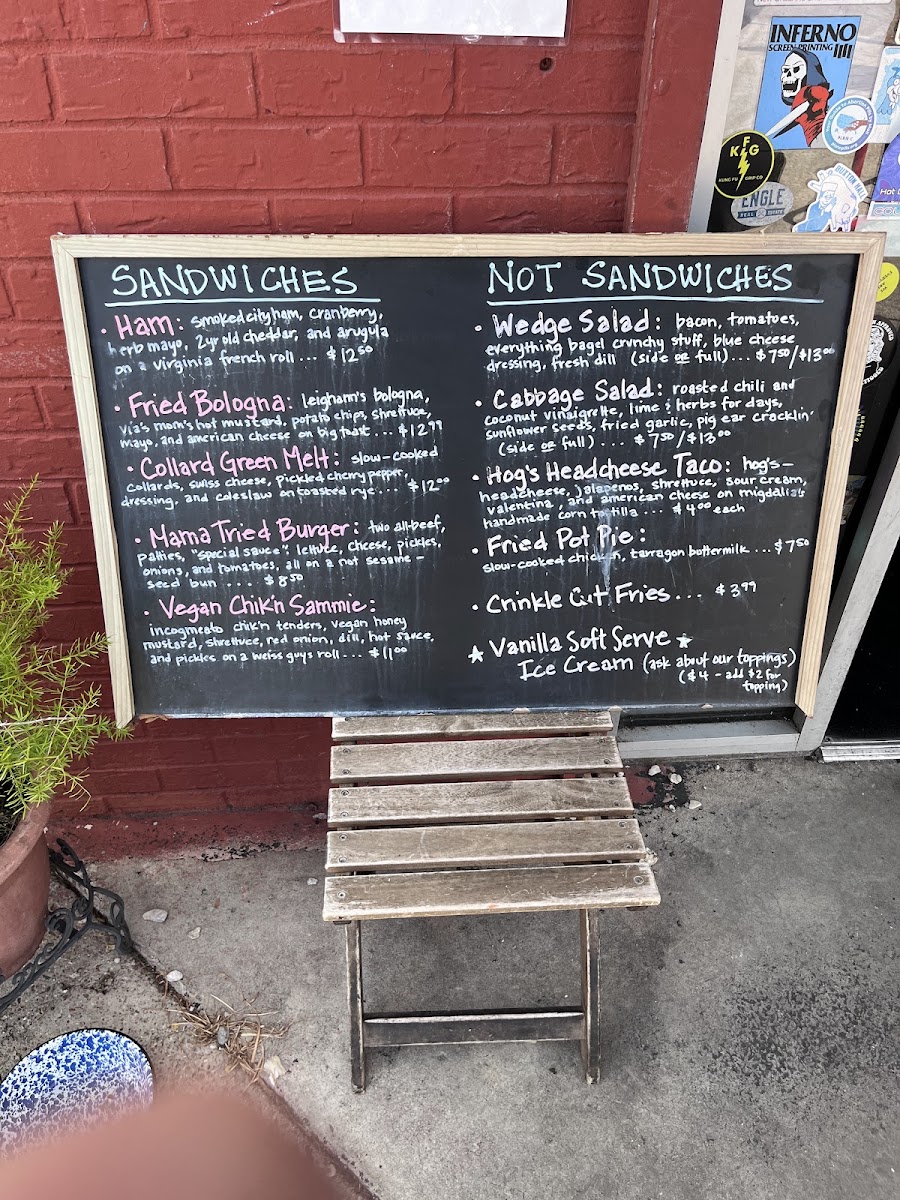 INFERNO
SCREEN PRINTING
KFG
KUNG FU GRIP CO
ENGLE
REAL ESTATE
SANDWICHES
• Ham: smoked city ham, cranberry,
herb mayo, 2yr old cheddar, and arugula
on a virginia french roll ... $12.50
• Fried Bologna: leigham's bologna,
via's mom's hot mustard, potato chips, shrettuce,
mayo, and american cheese on big toast ... $12.99
• Collard Green Melt: slow-cooked
collards, swiss cheese, pickled cherry pepper,
dressing, and coleslaw on toasted rye ... $12.00
• Mama Tried Burger: two all-beef,
patties, "special sauce", lettuce, cheese, pickles,
onions, and tomatoes, all on a not sesame-
seed bun .... $8.50
• Vegan Chik'n Sammie:
incogmeato chik'n tenders, vegan honey
mustard, shrettuce, red onion, dill, hot sauce,
and pickles on a weiss guys roll ... $11.00
NOT SANDWICHES
• Wedge Salad: bacon, tomatoes,
everything bagel crunchy stuff, blue cheese
dressing, fresh dill (side or full) ... $7.50/$13.00
• Cabbage Salad: roasted chili and
coconut vinaigrette, lime & herbs for days,
sunflower seeds, fried garlic, pig ear cracklin'
(side or full) ... $7.50/$13.00
• Hog's Headcheese Taco: hog's-
headcheese, jalapenos, shrettuce, sour cream,
valentina, and american cheese on migdalia's
handmade corn tortilla ... $4.00 each
• Fried Pot Pie:
slow-cooked chicken, tarragon buttermilk ... $7.50
• Crinkle Cut Fries ... $3.99
★ Vanilla Soft Serve ★
Ice Cream (ask about our toppings)
($4 - add $2 for
topping)